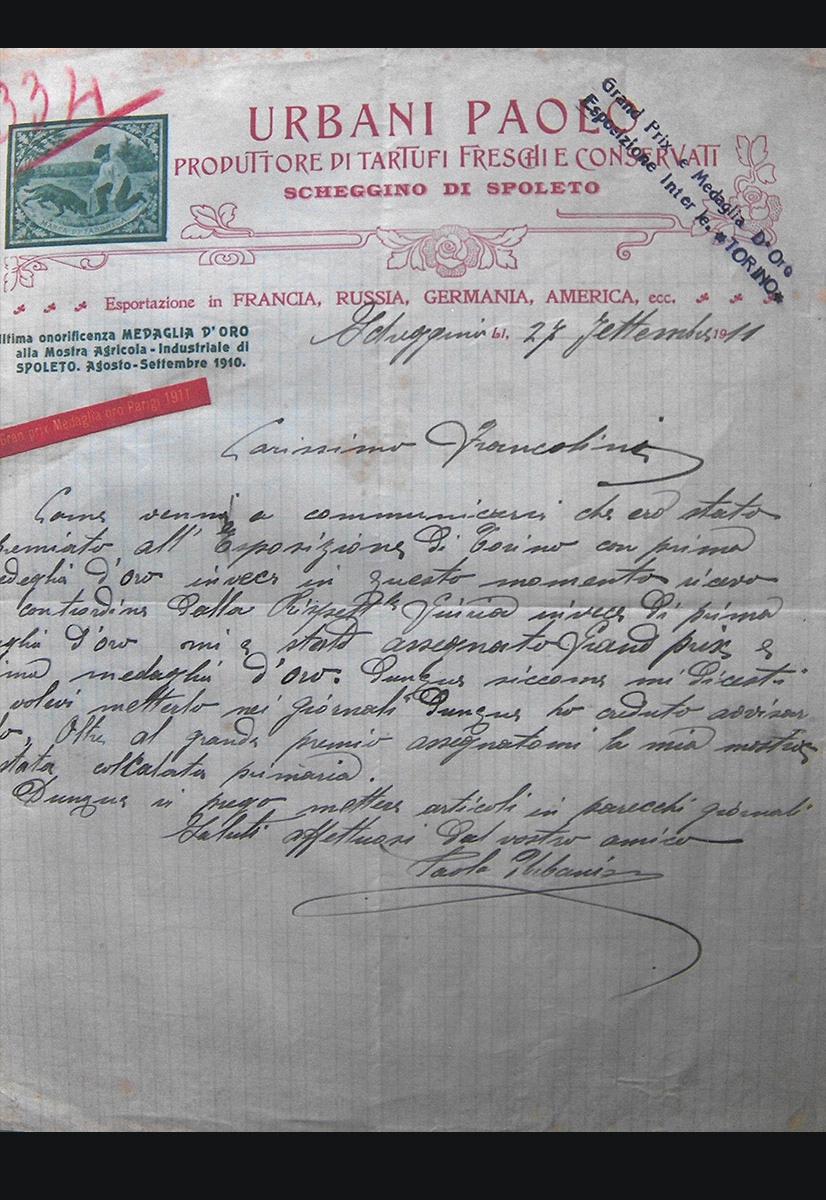 334
URBANI PAOLO
PRODUTTORE DI TARTUFI FRESCHI E CONSERVATI
SCHEGGINO DI SPOLETO
Grand Prix e Medaglia D'Oro
Esposizione Inter le. *TORINO*
MARCA DI FABBRICA
Esportazione in FRANCIA, RUSSIA, GERMANIA, AMERICA, ecc.
ltima onorificenza MEDAGLIA D'ORO
alla Mostra Agricola - Industriale di
SPOLETO. Agosto - Settembre 1910.
Scheggino li, 27 Settembre 1911
Gran prix Medaglia oro Parigi 1911
Carissimo Francolini
Come venni a communicarci che ero stato
remiato all' Esposizione di Torino con prima
edeglia d'oro invece in questo momento ricevo
contrordine dalla Giuria invece di prima
aglia d'oro mi è stato assegnato Grand prix e
ima medaglia d'oro. Dunque siccome mi dicesti
volevi metterlo nei giornali Dunque ho creduto avvisar
o, Oltre al grande premio assegnatomi la mia mostra
stata primaria.
Dunque vi prego mettere articoli in parecchi giornali
Saluti affettuosi dal vostro amico
Paolo Urbani